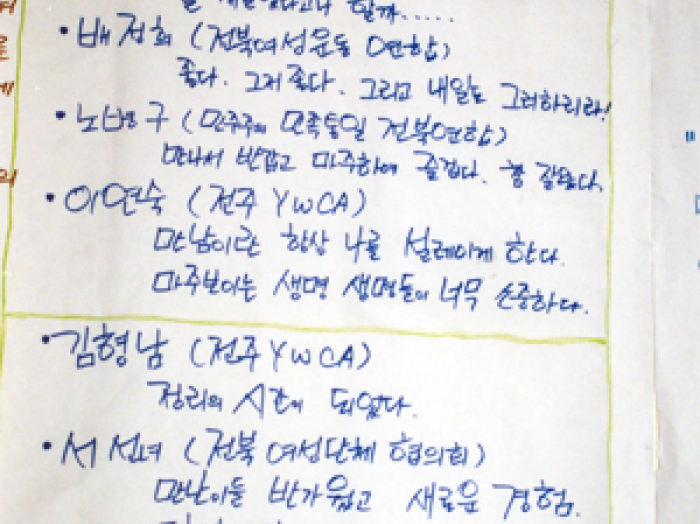 할까.....
• 배정희 (전북여성운동연합)
좋다. 그저 좋다. 그리고 내일도 그러하리라!
• 노병구 (민주주의 민족통일 전북연합)
만나서 반갑고 마주하여 즐겁다. 참 잘됐다.
• 이연숙 (전주 YWCA)
만남이란 항상 나를 설레이게 한다.
마주보이는 생명 생명들이 너무 소중하다.
• 김형남 (전주 YWCA)
정리의 시간이 되었다.
• 서선녀 (전북 여성단체 협의회)
만난이들 반가웠고 새로운 경험.